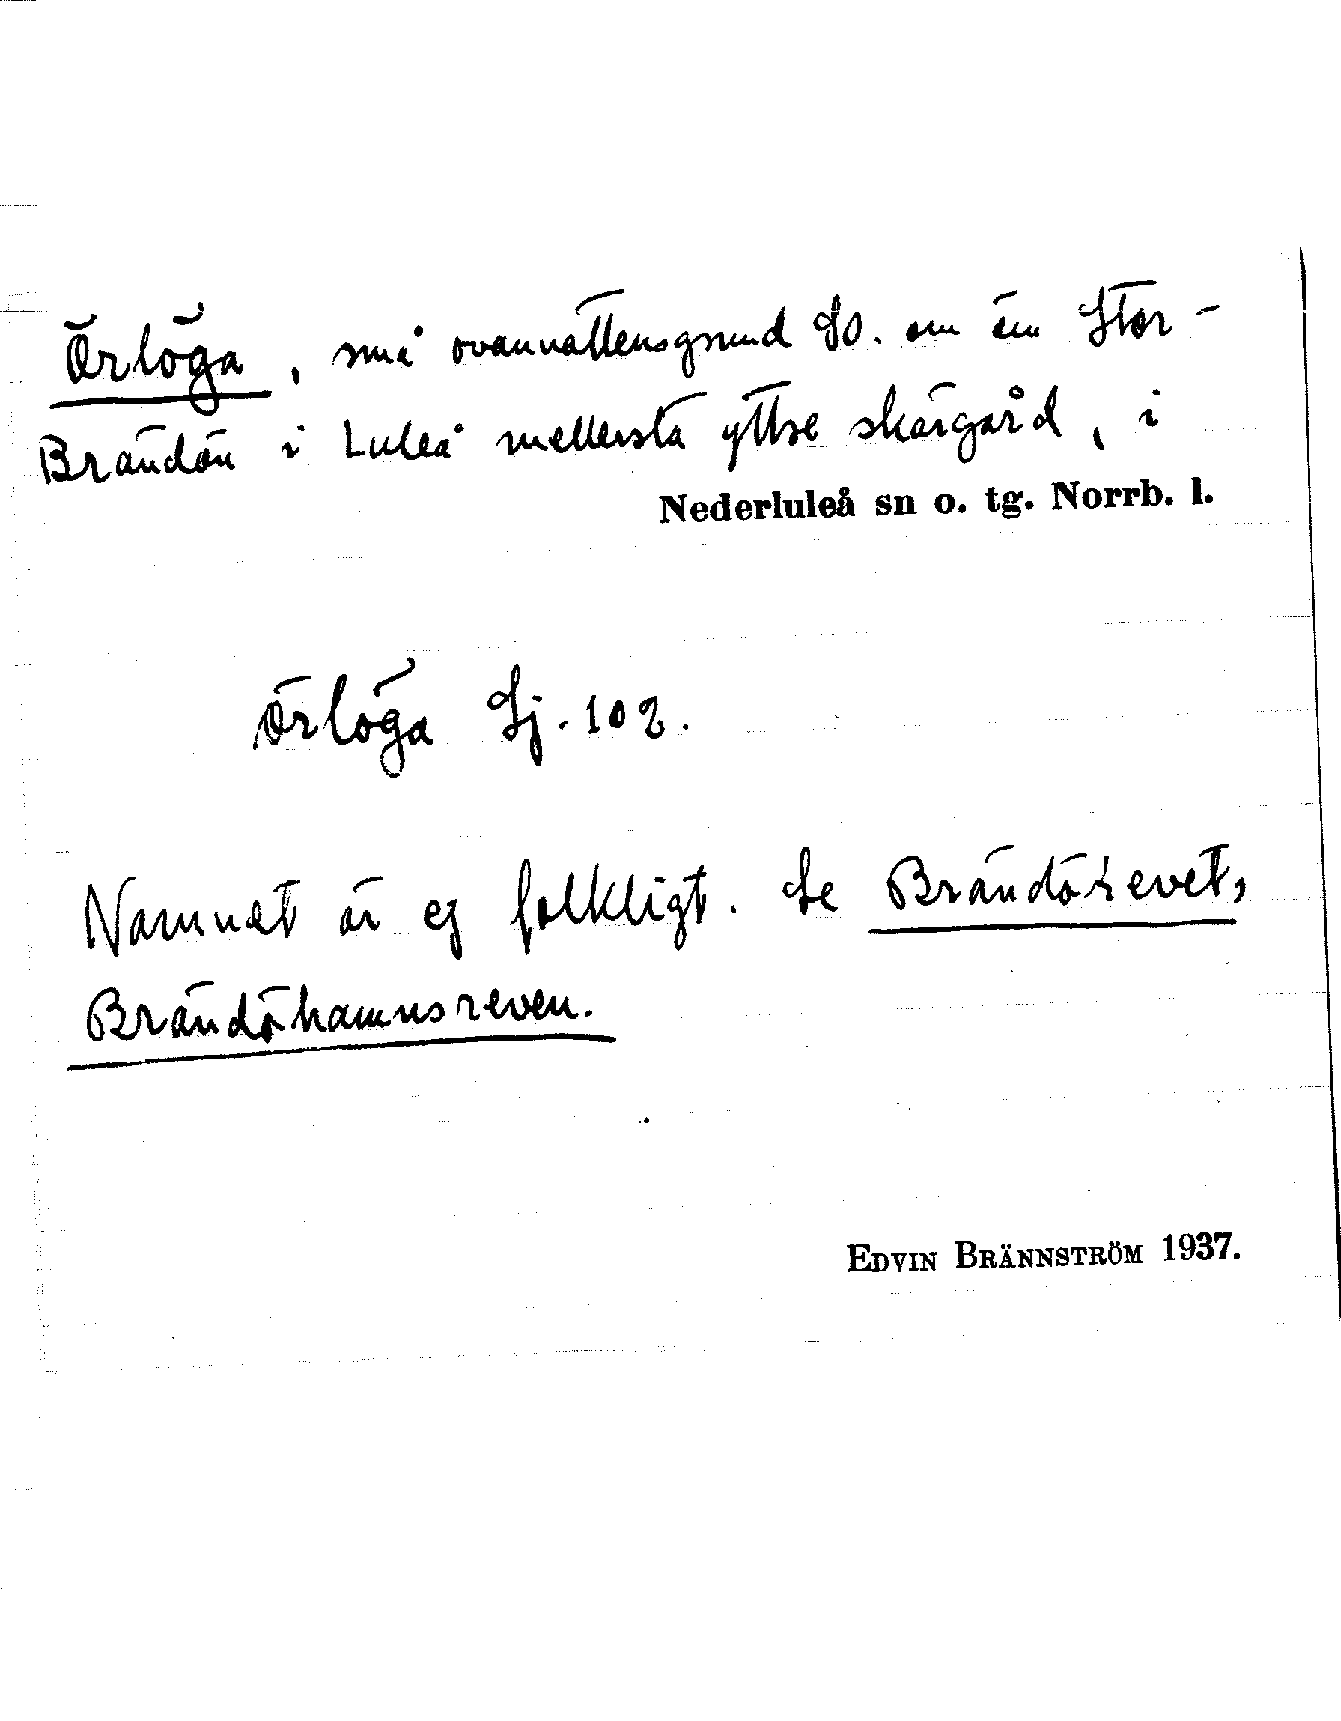 Örlöga, små ovanvattensgrund SO. om ön Stor-
Brändön i Luleå mellersta yttre skärgård, i
Nederluleå sn o. tg. Norrb. l.
Örlöga Sj. 102.
Namnet är ej folkligt. Se Brändörevet,
Brändöhamnsreven.
EDVIN BRÄNNSTRÖM 1937.